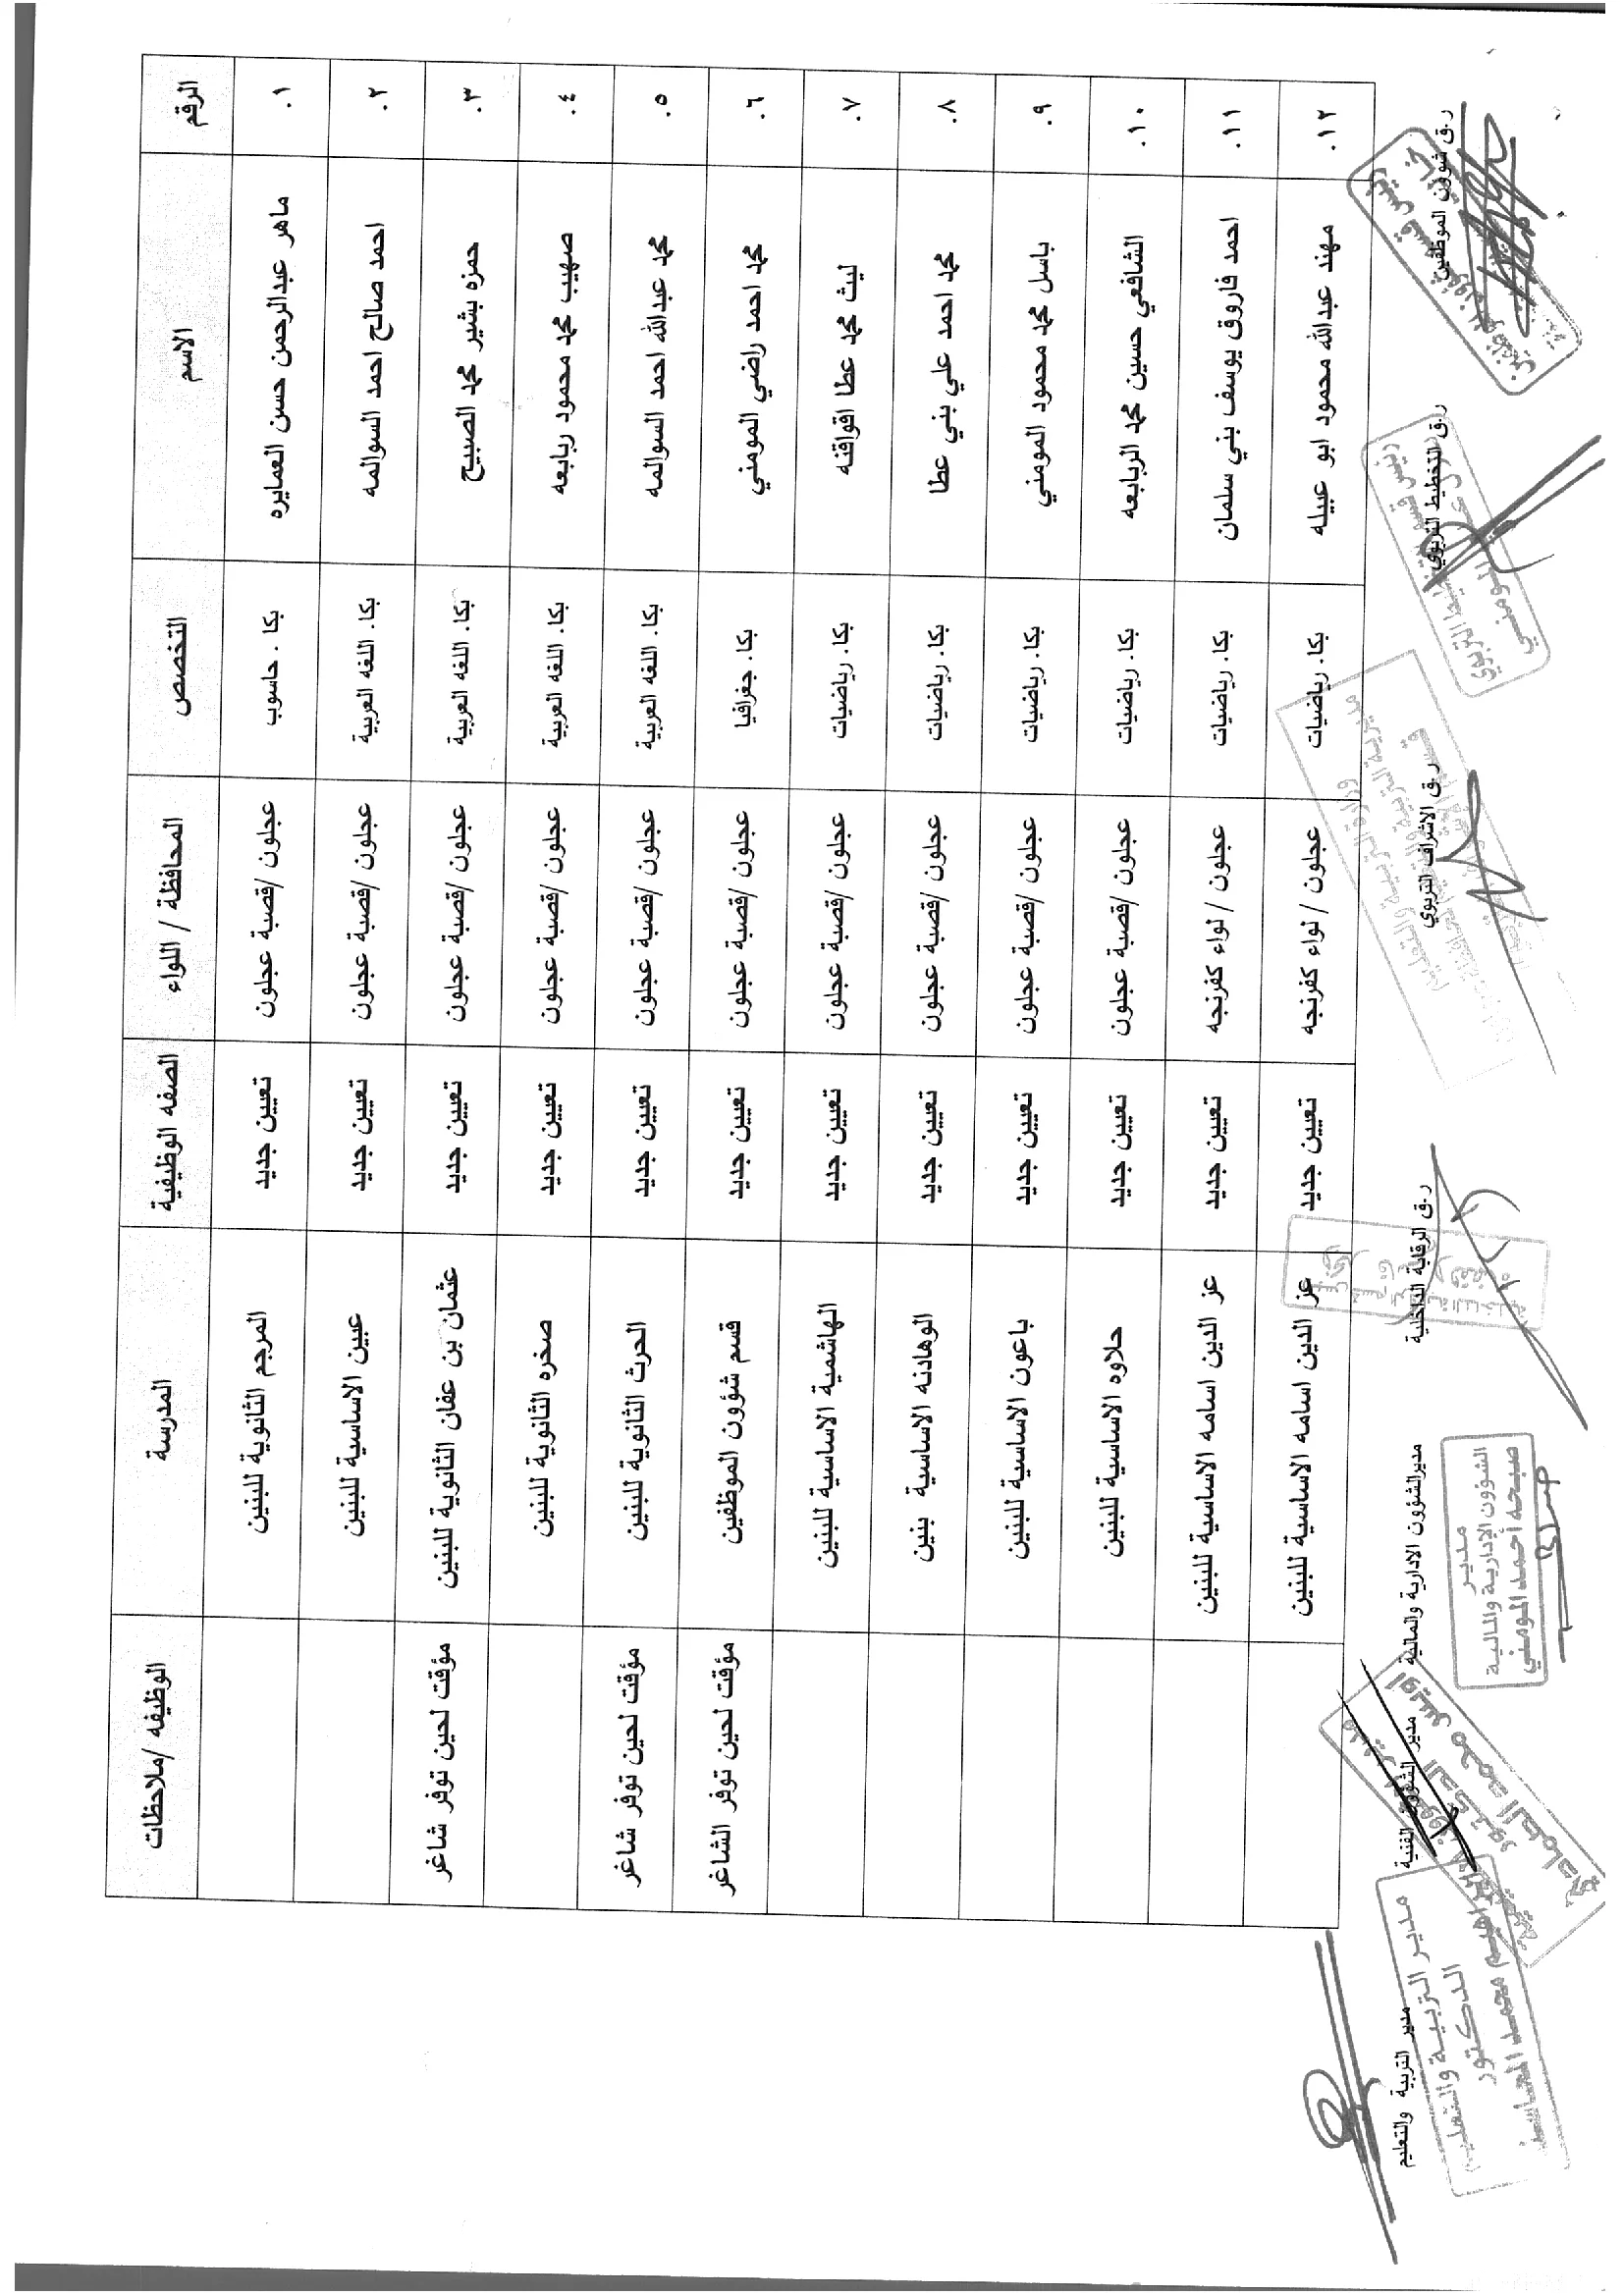 الرقم الاسم التخصص المحافظة / اللواء الصفه الوظيفية المدرسة الوظيفه /ملاحظات
١. ماهر عبدالرحمن حسن العمايره بكا . حاسوب عجلون /قصبة عجلون تعيين جديد المرجم الثانوية للبنين
٢. احمد صالح احمد السوالمه بكا. اللغه العربية عجلون /قصبة عجلون تعيين جديد عبين الاساسية للبنين
٣. حمزه بشير محمد الصبيح بكا. اللغه العربية عجلون /قصبة عجلون تعيين جديد عثمان بن عفان الثانوية للبنين مؤقت لحين توفر شاغر
٤. صهيب محمد محمود ربابعه بكا. اللغه العربية عجلون /قصبة عجلون تعيين جديد صخره الثانوية للبنين
٥. محمد عبدالله احمد السوالمه بكا. اللغه العربية عجلون /قصبة عجلون تعيين جديد الحرث الثانوية للبنين مؤقت لحين توفر شاغر
٦. محمد احمد راضي المومني بكا. جغرافيا عجلون /قصبة عجلون تعيين جديد قسم شؤون الموظفين مؤقت لحين توفر الشاغر
٧. ليث محمد عطا اقواقنه بكا. رياضيات عجلون /قصبة عجلون تعيين جديد الهاشمية الاساسية للبنين
٨. محمد احمد علي بني عطا بكا. رياضيات عجلون /قصبة عجلون تعيين جديد الوهادنه الاساسية بنين
٩. باسل محمد محمود المومني بكا. رياضيات عجلون /قصبة عجلون تعيين جديد باعون الاساسية للبنين
١٠. الشافعي حسين محمد الربابعه بكا. رياضيات عجلون /قصبة عجلون تعيين جديد حلاوه الاساسية للبنين
١١. احمد فاروق يوسف بني سلمان بكا. رياضيات عجلون / لواء كفرنجه تعيين جديد عز الدين اسامه الاساسية للبنين
١٢. مهند عبدالله محمود ابو عبيله بكا. رياضيات عجلون / لواء كفرنجه تعيين جديد عز الدين اسامه الاساسية للبنين
ر.ق شؤون الموظفين ر.ق التخطيط التربوي ر.ق الاشراف التربوي ر.ق الرقابة الداخلية مدير الشؤون الادارية والمالية مدير الشؤون الفنية مدير التربية والتعليم
مدير
الشؤون الإدارية والمالية
صبحه أحمد المومني
مدير التربية والتعليم
الدكتور